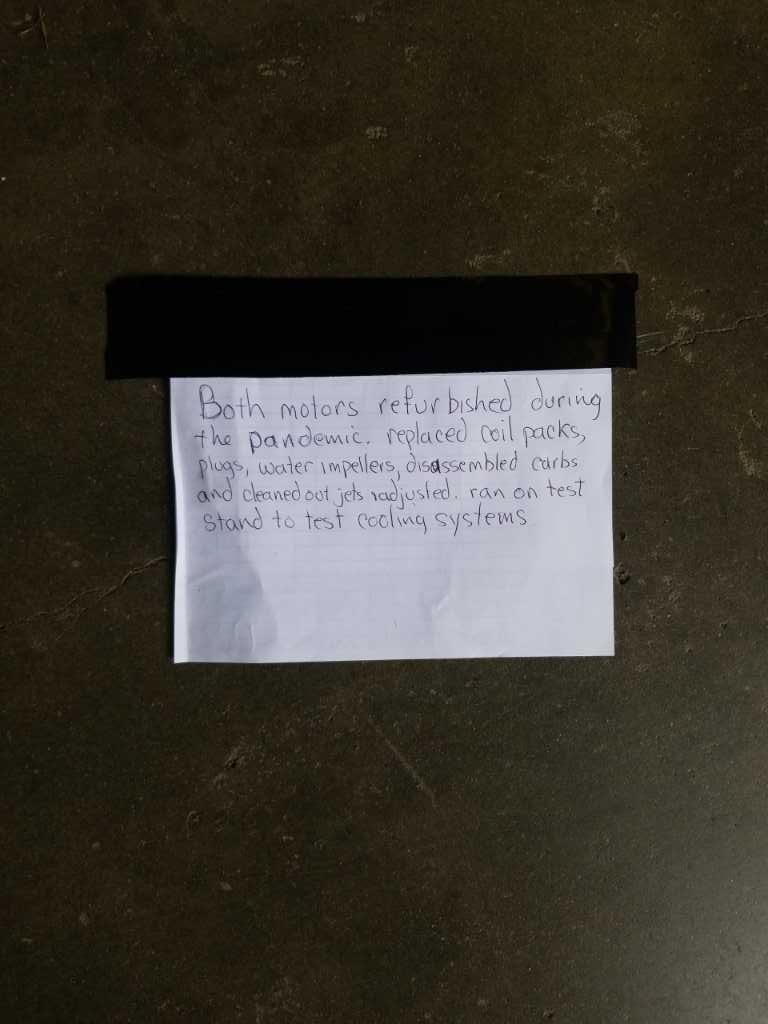 Both motors refurbished during
the pandemic. replaced coil packs,
plugs, water impellers, disassembled carbs
and cleaned out jets radjusted. ran on test
stand to test cooling systems